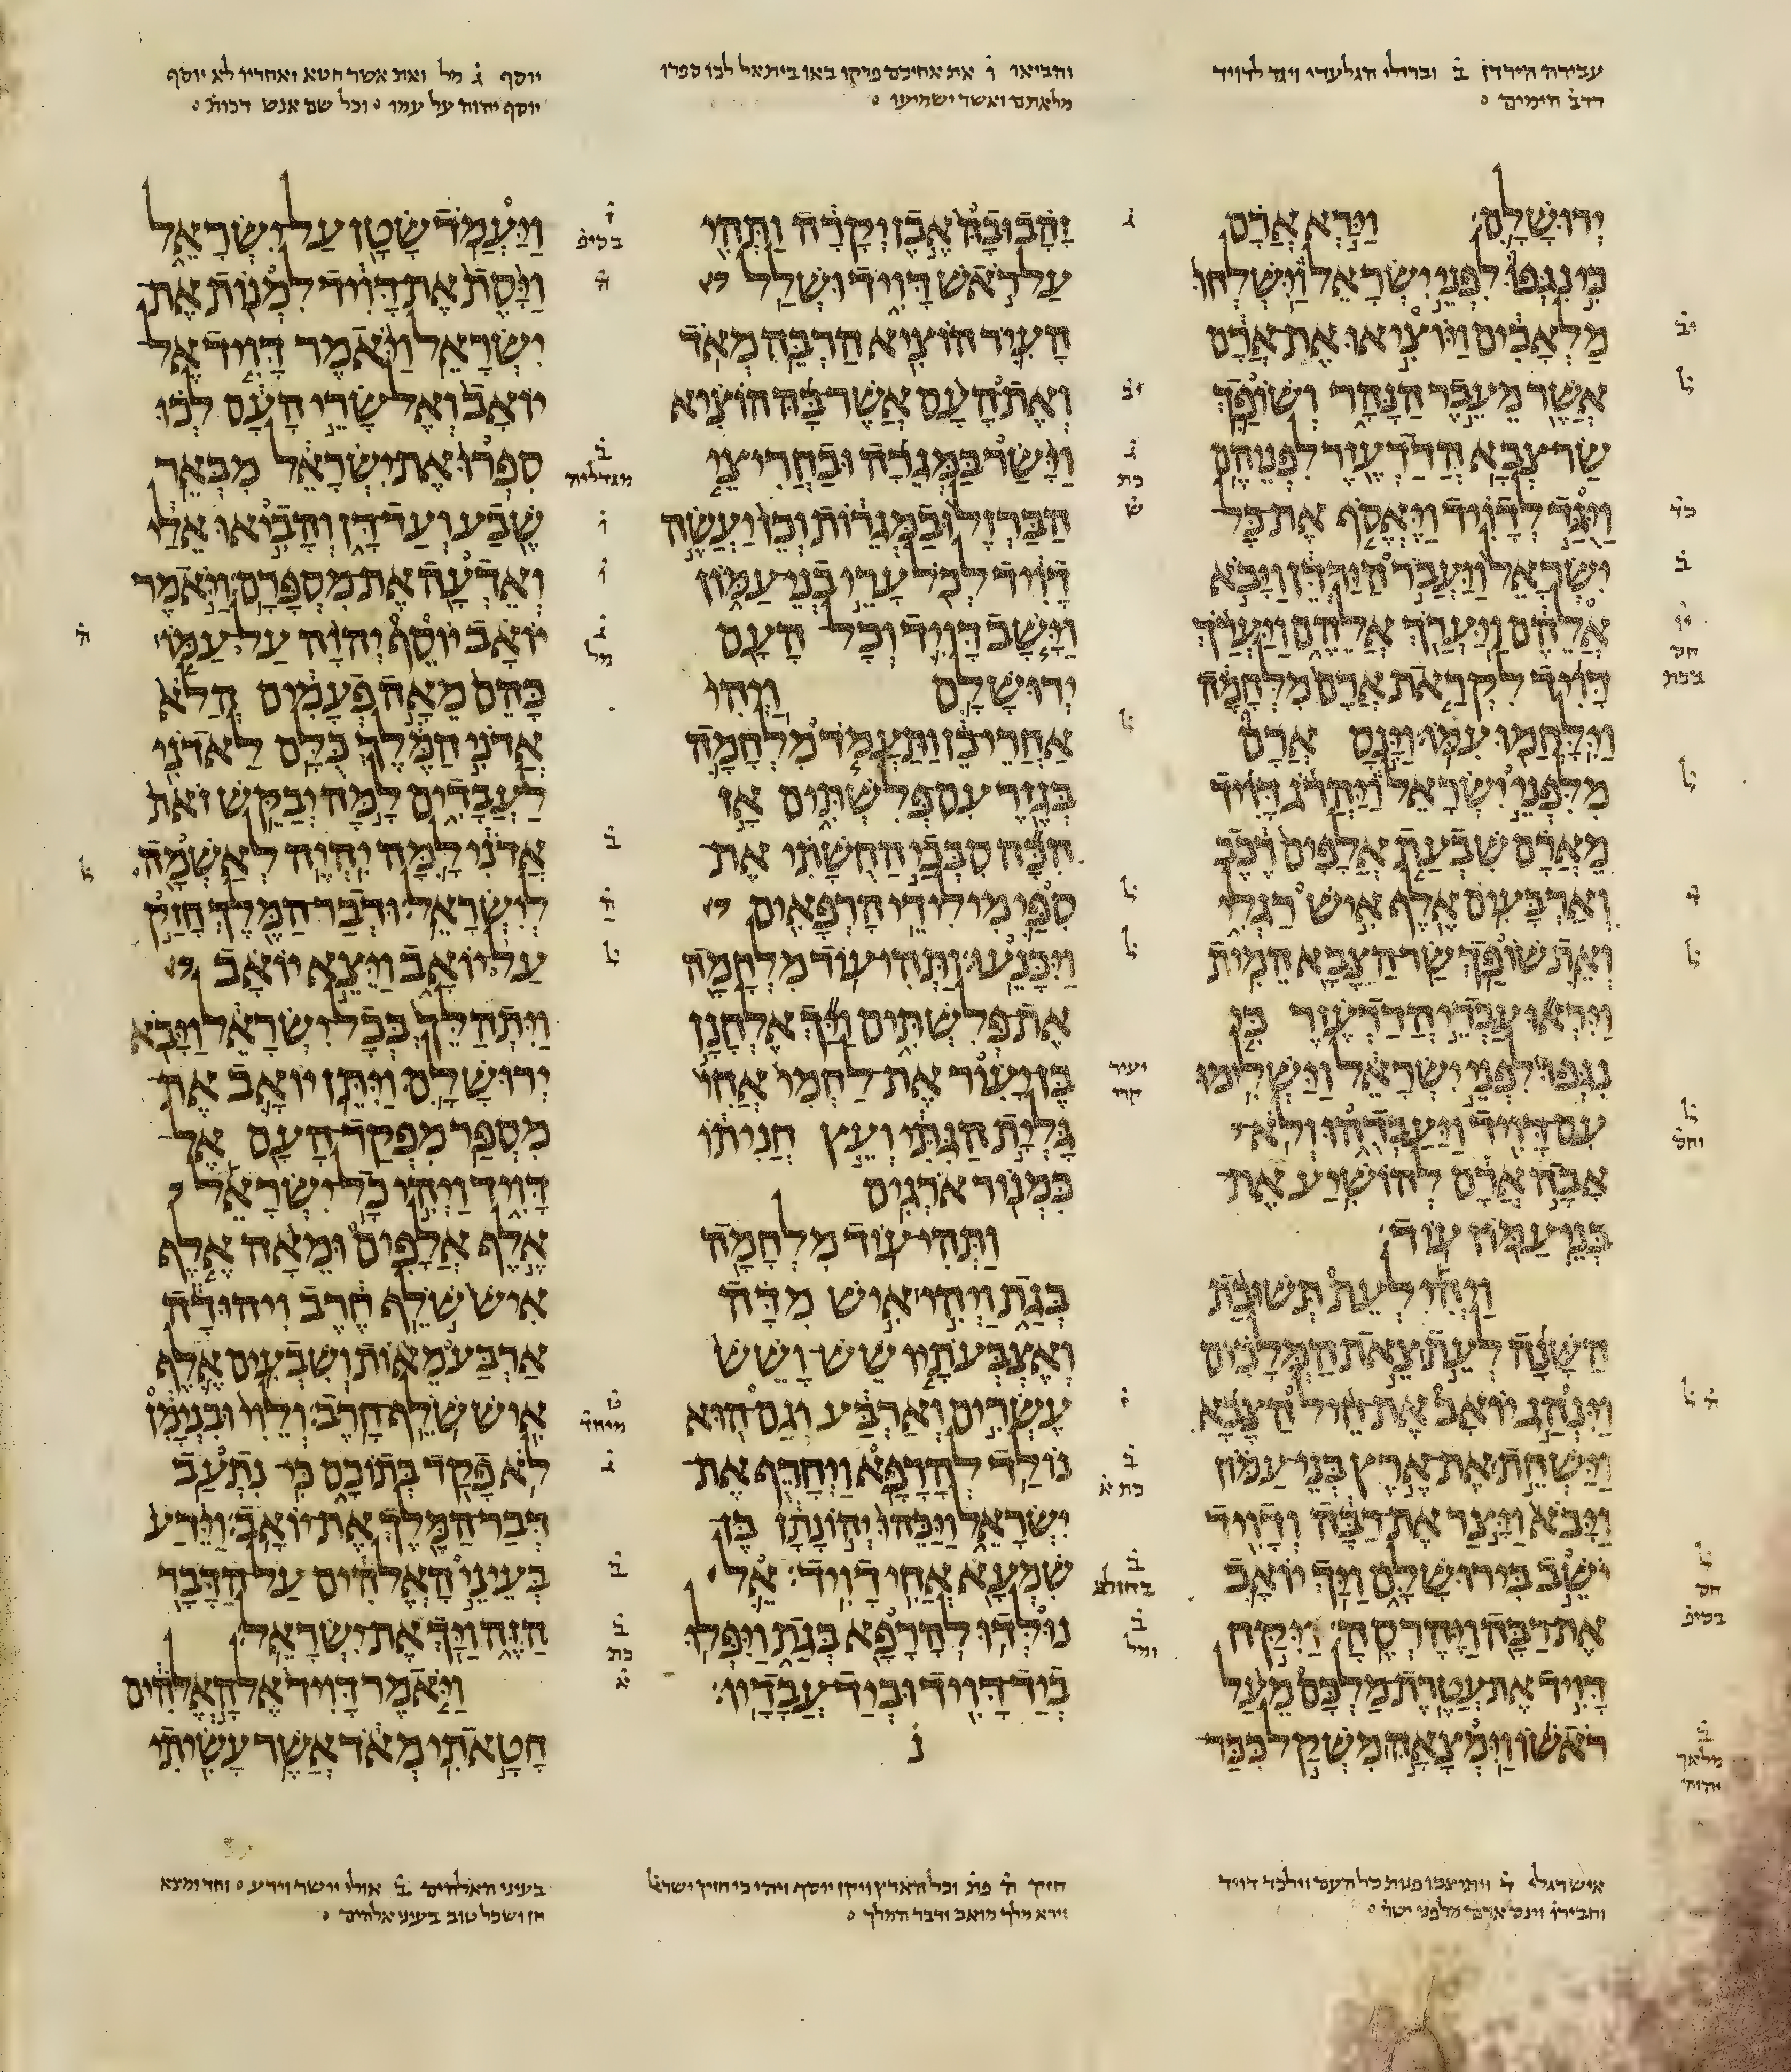 עבידה הירדן ב̇ וברזלי הגלעדי ויגד לדויד
דדב̇ הימים
והביאו ו̇ את אחיכם פרקו באו ביתאל לכו ספרו
מלאתם ואשר ישמיעו
יוסף ג̇ מל ואת אשר חטא ואחריו לא יוסף
יוסף יהוה על עמו וכל שם אנש דכות̇
יְרוּשָׁלִָם׃ וַיַּרְא אֲרָם
כִּי נִגְּפוּ לִפְנֵי יִשְׂרָאֵל וַיִּשְׁלְחוּ
מַלְאָכִים וַיּוֹצִיאוּ אֶת־אֲרָם
אֲשֶׁר מֵעֵבֶר הַנָּהָר וְשׁוֹפַךְ
שַׂר־צְבָא הֲדַדְעֶזֶר לִפְנֵיהֶם׃
וַיֻּגַּד לְדָוִיד וַיֶּאֱסֹף אֶת־כָּל־
יִשְׂרָאֵל וַיַּעֲבֹר הַיַּרְדֵּן וַיָּבֹא
אֲלֵהֶם וַיַּעֲרֹךְ אֲלֵהֶם וַיַּעֲרֹךְ
דָּוִיד לִקְרַאת אֲרָם מִלְחָמָה
וַיִּלָּחֲמוּ עִמּוֹ׃ וַיָּנָס אֲרָם
מִלִּפְנֵי יִשְׂרָאֵל וַיַּהֲרֹג דָּוִיד
מֵאֲרָם שִׁבְעַת אֲלָפִים רֶכֶב
וְאַרְבָּעִים אֶלֶף אִישׁ רַגְלִי
וְאֵת שׁוֹפַךְ שַׂר־הַצָּבָא הֵמִית׃
וַיִּרְאוּ עַבְדֵי הֲדַדְעֶזֶר כִּי
נִגְּפוּ לִפְנֵי יִשְׂרָאֵל וַיַּשְׁלִימוּ
עִם־דָּוִיד וַיַּעַבְדֻהוּ וְלֹא־
אָבָה אֲרָם לְהוֹשִׁיעַ אֶת־
בְּנֵי־עַמּוֹן עוֹד׃
וַיְהִי לְעֵת תְּשׁוּבַת
הַשָּׁנָה לְעֵת צֵאת הַמְּלָכִים
וַיִּנְהַג יוֹאָב אֶת־חֵיל הַצָּבָא
וַיַּשְׁחֵת אֶת־אֶרֶץ בְּנֵי־עַמּוֹן
וַיָּבֹא וַיָּצַר אֶת־רַבָּה וְדָוִיד
יֹשֵׁב בִּירוּשָׁלִָם וַיַּךְ יוֹאָב
אֶת־רַבָּה וַיֶּהֶרְסֶהָ׃ וַיִּקַּח
דָּוִיד אֶת־עֲטֶרֶת־מַלְכָּם מֵעַל
רֹאשׁוֹ וַיִּמְצָאָהּ מִשְׁקַל כִּכַּר־
זָהָב וּבָהּ אֶבֶן יְקָרָה וַתְּהִי
עַל־רֹאשׁ דָּוִיד וּשְׁלַל
הָעִיר הוֹצִיא הַרְבֵּה מְאֹד׃
וְאֶת־הָעָם אֲשֶׁר־בָּהּ הוֹצִיא
וַיָּשַׂר בַּמְּגֵרָה וּבַחֲרִיצֵי
הַבַּרְזֶל וּבַמְּגֵרוֹת וְכֵן יַעֲשֶׂה
דָוִיד לְכֹל עָרֵי בְנֵי־עַמּוֹן
וַיָּשָׁב דָּוִיד וְכָל־הָעָם
יְרוּשָׁלִָם׃ וַיְהִי
אַחֲרֵי־כֵן וַתַּעֲמֹד מִלְחָמָה
בְּגֶזֶר עִם־פְּלִשְׁתִּים אָז
הִכָּה סִבְּכַי הַחֻשָׁתִי אֶת־
סִפַּי מִילִדֵי הָרְפָאִים
וַיִּכָּנֵעוּ׃ וַתְּהִי־עוֹד מִלְחָמָה
אֶת־פְּלִשְׁתִּים וַיַּךְ אֶלְחָנָן
בֶּן־יָעוּר אֶת־לַחְמִי אֲחִי
גָּלְיָת הַגִּתִּי וְעֵץ חֲנִיתוֹ
כִּמְנוֹר אֹרְגִים׃
וַתְּהִי־עוֹד מִלְחָמָה
בְּגַת וַיְהִי אִישׁ מִדָּה
וְאֶצְבְּעֹתָיו שֵׁשׁ־וָשֵׁשׁ
עֶשְׂרִים וְאַרְבַּע וְגַם־הוּא
נוֹלַד לְהָרָפָא׃ וַיְחָרֵף אֶת־
יִשְׂרָאֵל וַיַּכֵּהוּ יְהוֹנָתָן בֶּן־
שִׁמְעָא אֲחִי דָוִיד׃ אֵל
נוּלְּדוּ לְהָרָפָא בְּגַת וַיִּפְּלוּ
בְיַד־דָּוִיד וּבְיַד־עֲבָדָיו׃
וַיַּעֲמֹד שָׂטָן עַל־יִשְׂרָאֵל
וַיָּסֶת אֶת־דָּוִיד לִמְנוֹת אֶת־
יִשְׂרָאֵל׃ וַיֹּאמֶר דָּוִיד אֶל־
יוֹאָב וְאֶל־שָׂרֵי הָעָם לְכוּ
סִפְרוּ אֶת־יִשְׂרָאֵל מִבְּאֵר
שֶׁבַע וְעַד־דָּן וְהָבִיאוּ אֵלַי
וְאֵדְעָה אֶת־מִסְפָּרָם׃ וַיֹּאמֶר
יוֹאָב יוֹסֵף יְהוָה עַל־עַמּוֹ
כָּהֵם מֵאָה פְעָמִים הֲלֹא
אֲדֹנִי הַמֶּלֶךְ כֻּלָּם לַאדֹנִי
לַעֲבָדִים לָמָּה יְבַקֵּשׁ זֹאת
אֲדֹנִי לָמָּה יִהְיֶה לְאַשְׁמָה
לְיִשְׂרָאֵל׃ וּדְבַר־הַמֶּלֶךְ חָזַק
עַל־יוֹאָב וַיֵּצֵא יוֹאָב
וַיִּתְהַלֵּךְ בְּכָל־יִשְׂרָאֵל וַיָּבֹא
יְרוּשָׁלִָם׃ וַיִּתֵּן יוֹאָב אֶת־
מִסְפַּר מִפְקַד־הָעָם אֶל־
דָּוִיד וַיְהִי כָל־יִשְׂרָאֵל
אֶלֶף אֲלָפִים וּמֵאָה אֶלֶף
אִישׁ שֹׁלֵף חֶרֶב וִיהוּדָה
אַרְבַּע מֵאוֹת וְשִׁבְעִים אֶלֶף
אִישׁ שֹׁלֵף חָרֶב׃ וְלֵוִי וּבִנְיָמִן
לֹא פָקַד בְּתוֹכָם כִּי־נִתְעַב
דְּבַר־הַמֶּלֶךְ אֶת־יוֹאָב׃ וַיֵּרַע
בְּעֵינֵי הָאֱלֹהִים עַל־הַדָּבָר
הַזֶּה וַיַּךְ אֶת־יִשְׂרָאֵל׃
וַיֹּאמֶר דָּוִיד אֶל־הָאֱלֹהִים
חָטָאתִי מְאֹד אֲשֶׁר עָשִׂיתִי
יעיר
קרי
מלאך
יהוה
איש רגלי ד̇ ויתיצבו פנות כל העם וילכד דויד
וחבירו וינס ארם מלפני ישר̇
חזק ה̇ פת̇ וכל הארץ ויקז יוסף ויהי כי חזק ישראל
וירא מלך מואב ודבר המלך
בעיני האלהים ב̇ אולי יישר וירע וחד ומצא
חן ושכל טוב בעיני אלהים